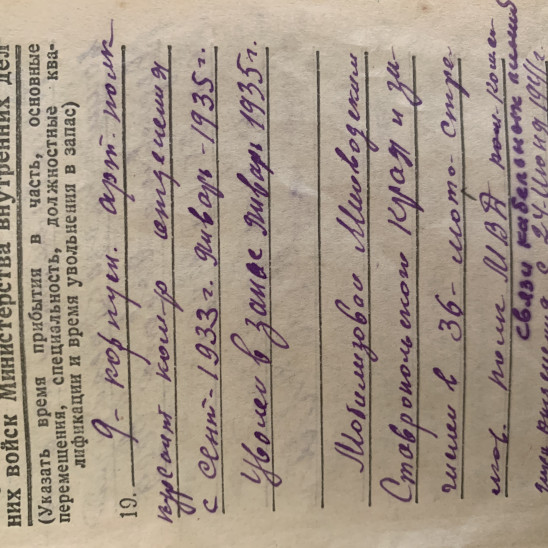 них войск Министерства внутренних дел
(Указать время прибытия в часть, основные
перемещения, специальность, должностные ква-
лификации и время увольнения в запас)
19. 9- корпусн. арт. полк
курсант ком-р отделения
с сент-1933г. январь-1935г.
Уволен в запас январь 1935г.
Мобилизован
Ставропольского Края и за-
числен в 36- мото-стре
лков. полк МВД
связи кабельных линий
с 24-июня 1941г.